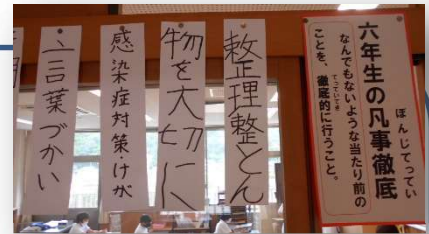 六年生の凡事徹底
ぼんじてってい
なんでもないような当たり前の
ことを、徹底的に行うこと。
てっていてき
整理整とん
物を大切に
感染症対策・けが
言葉づかい